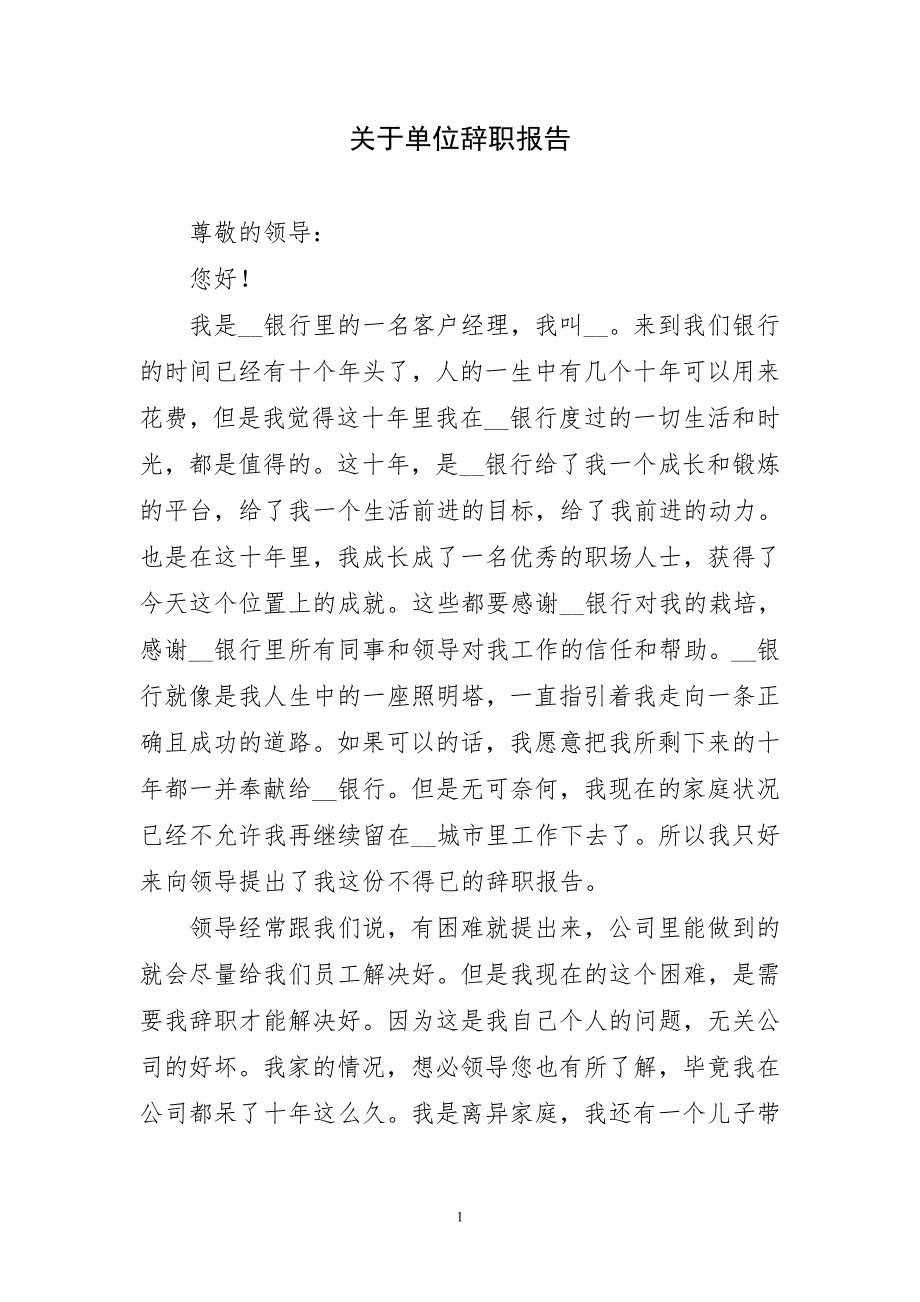 关于单位辞职报告
尊敬的领导：
您好！
我是__银行里的一名客户经理，我叫__。来到我们银行
的时间已经有十个年头了，人的一生中有几个十年可以用来
花费，但是我觉得这十年里我在__银行度过的一切生活和时
光，都是值得的。这十年，是__银行给了我一个成长和锻炼
的平台，给了我一个生活前进的目标，给了我前进的动力。
也是在这十年里，我成长成了一名优秀的职场人士，获得了
今天这个位置上的成就。这些都要感谢__银行对我的栽培，
感谢__银行里所有同事和领导对我工作的信任和帮助。__银
行就像是我人生中的一座照明塔，一直指引着我走向一条正
确且成功的道路。如果可以的话，我愿意把我所剩下来的十
年都一并奉献给__银行。但是无可奈何，我现在的家庭状况
已经不允许我再继续留在__城市里工作下去了。所以我只好
来向领导提出了我这份不得已的辞职报告。
领导经常跟我们说，有困难就提出来，公司里能做到的
就会尽量给我们员工解决好。但是我现在的这个困难，是需
要我辞职才能解决好。因为这是我自己个人的问题，无关公
司的好坏。我家的情况，想必领导您也有所了解，毕竟我在
公司都呆了十年这么久。我是离异家庭，我还有一个儿子带
1